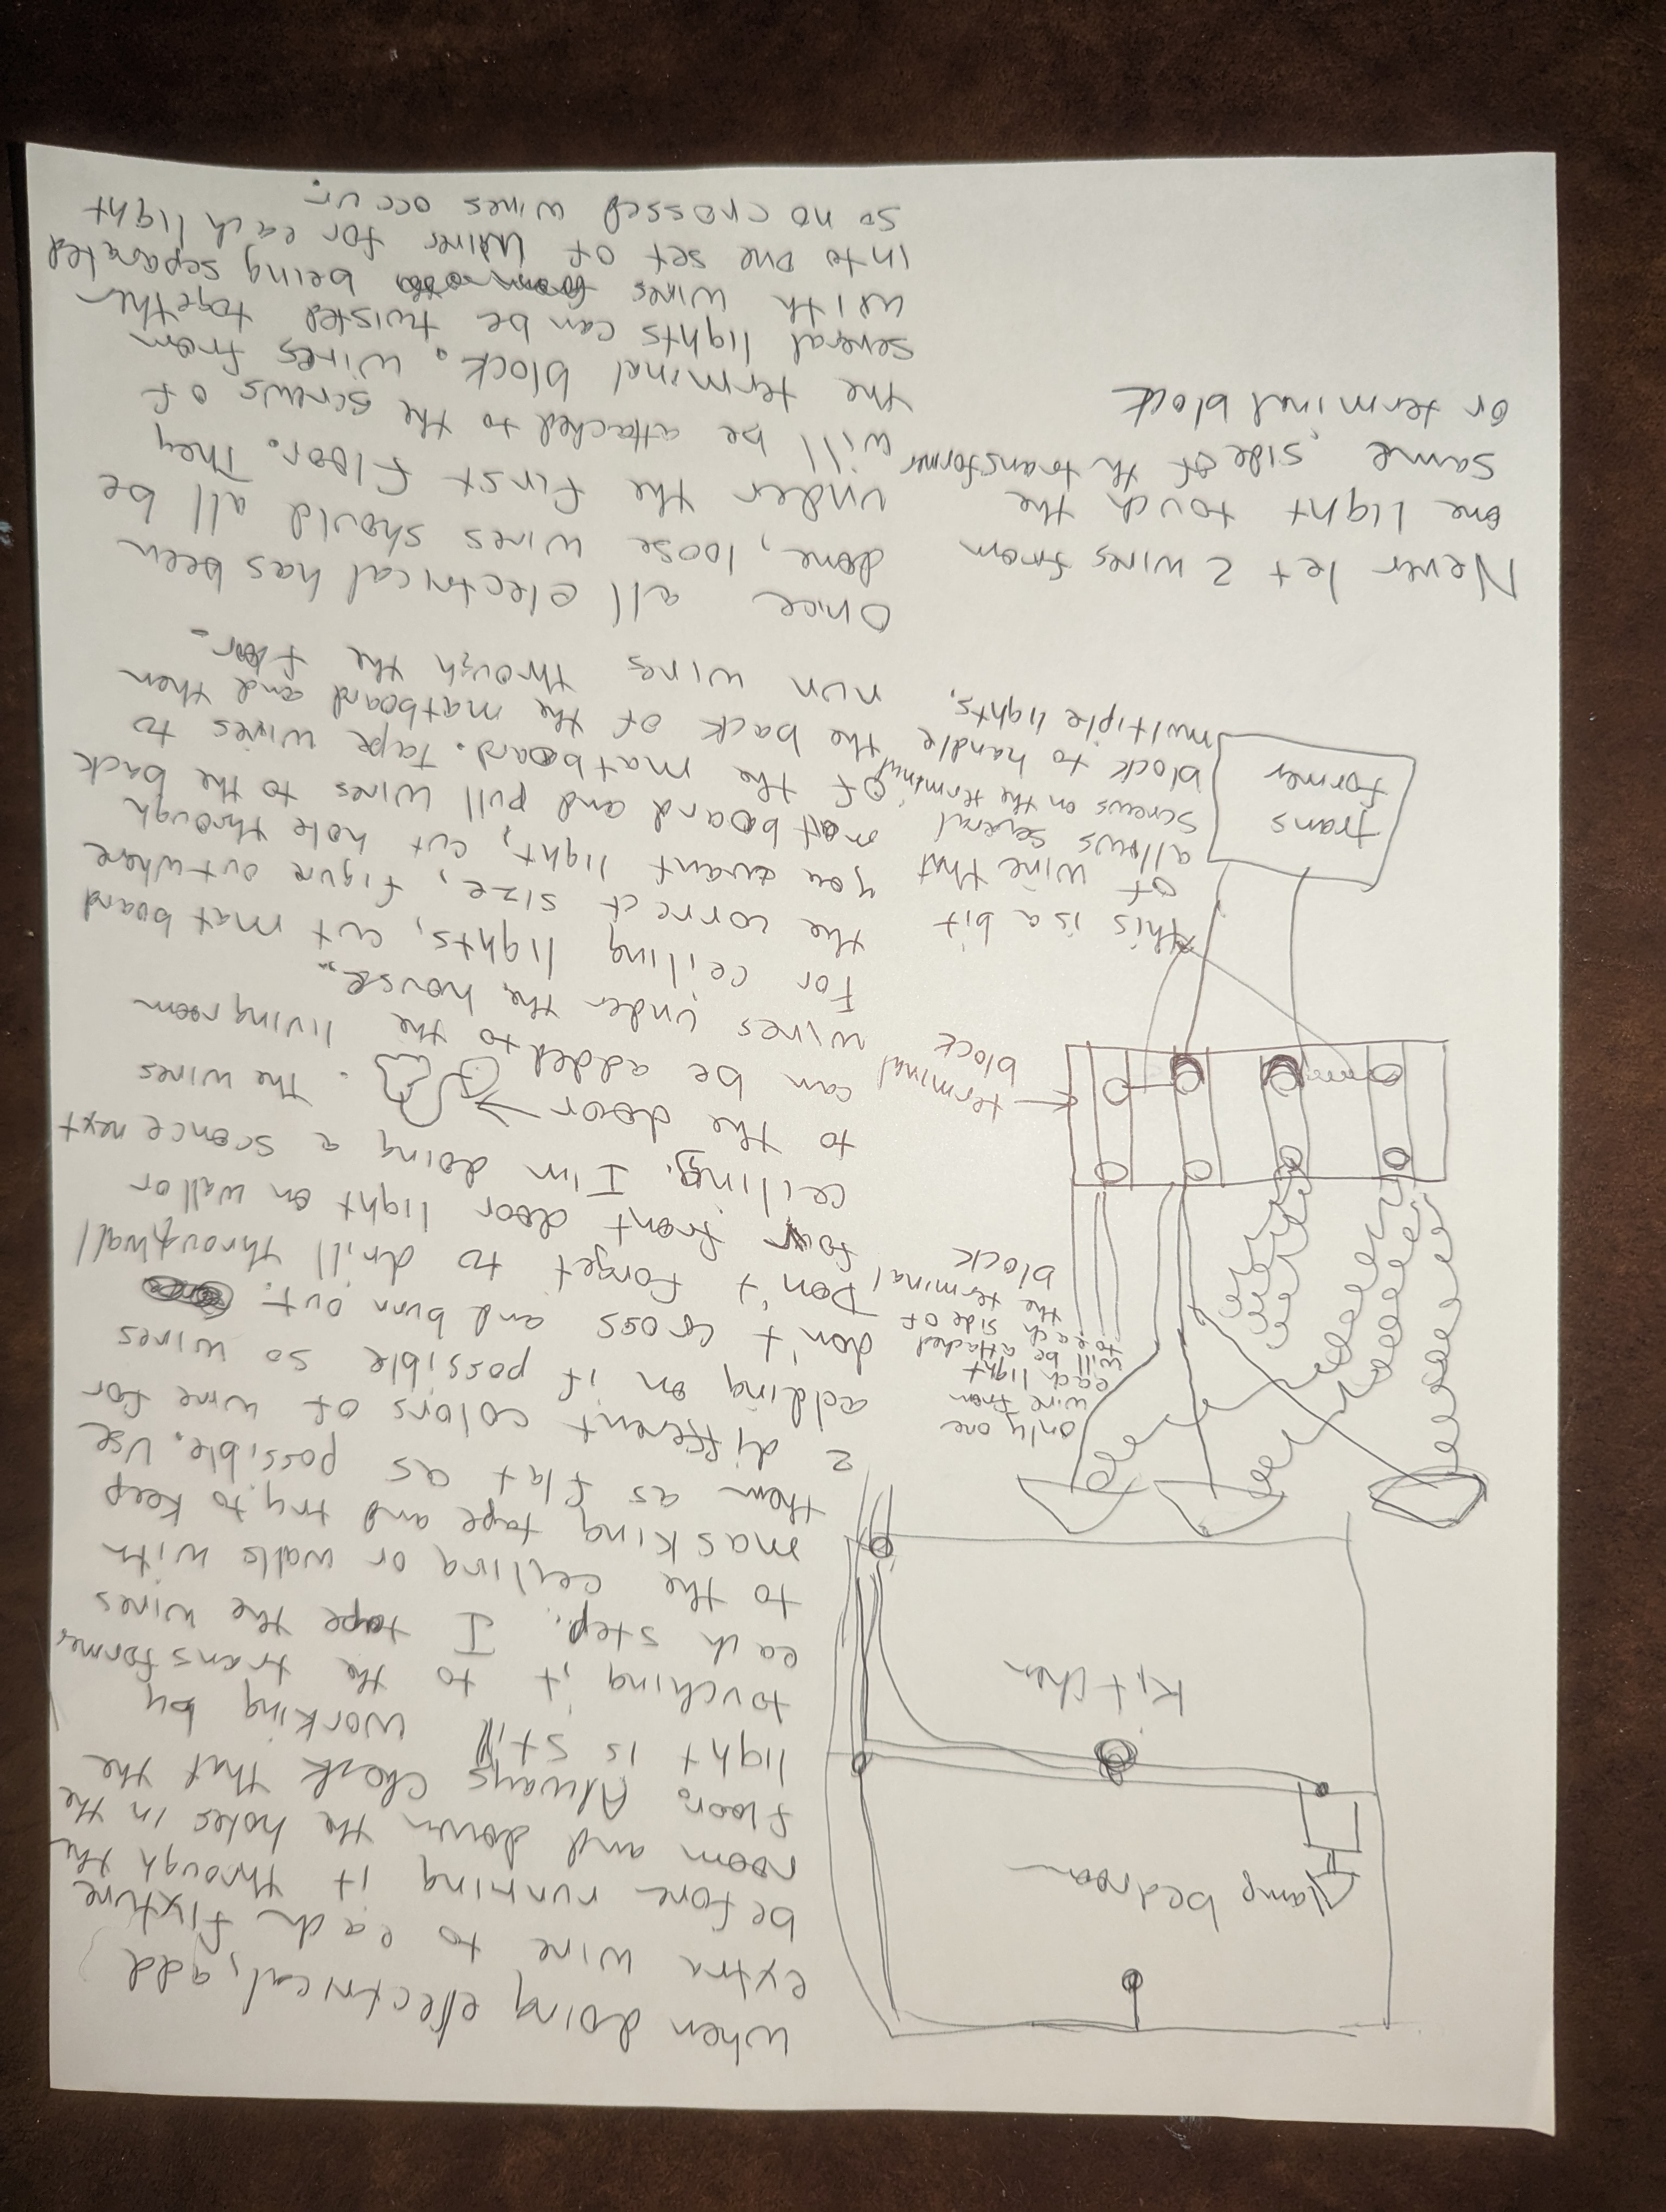 when doing electrical, add
extra wire to each fixture
before running it through the
room and down the holes in the
floor. Always check that the
light is still working by
touching it to the transformer
each step. I tape the wires
to the ceiling or walls with
masking tape and try to keep
them as flat as possible. Use
2 different colors of wire for
adding on if possible so wires
don't cross and burn out.
Don't forget to drill through wall
for front door light on wall or
ceiling. I'm doing a sconce next
to the door → . The wires
can be added to the living room
wires under the house.
For ceiling lights, cut mat board
the correct size, figure out where
you want light, cut hole through
mat board and pull wires to the back
of the matboard. Tape wires to
the back of the matboard and then
run wires through the floor.
Once all electrical has been
done, loose wires should all be
under the first floor. They
will be attached to the screws of
the terminal block. Wires from
several lights can be twisted together
with wires being separated
into one set of wires for each light
so no crossed wires occur.
lamp bedroom
Kitchen
only one
wire from
each light
will be attached
to each side of
the terminal
block
terminal
block
this is a bit
of wire that
allows several
screws on the terminal
block to handle
multiple lights.
trans
former
Never let 2 wires from
one light touch the
same side of the transformer
or terminal block